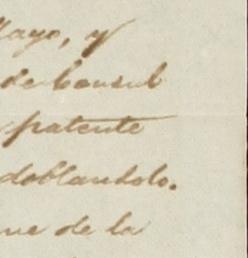 Mayo, y
de Consul
patente
doblandolo.
que de la